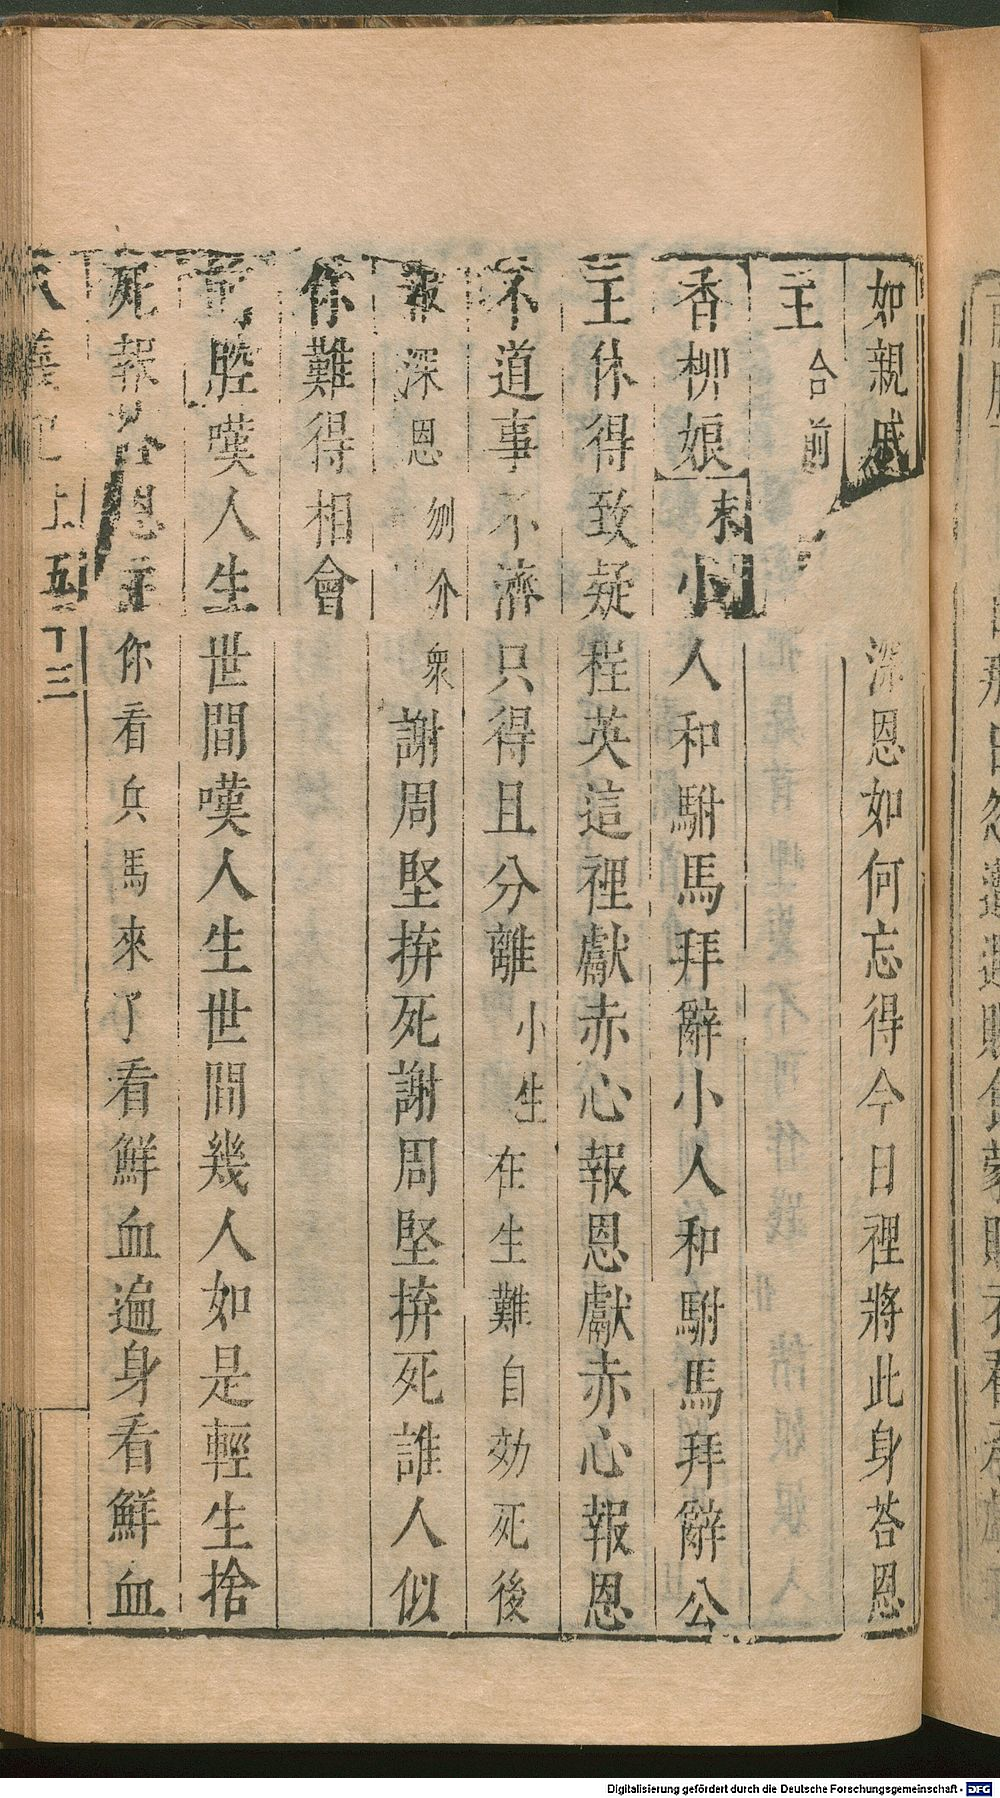 如親戚深恩如何忘得今日裡將此身荅恩
主合前
香柳娘末小人和駙馬拜辭小人和駙馬拜辭公
主休得致疑程英這裡獻赤心報恩獻赤心報恩
不道事不濟只得且分離小生在生難自効死後
報深恩刎介衆謝周堅拚死謝周堅拚死誰人似
你難得相會
腔嘆人生世間嘆人生世間幾人如是輕生捨
死報恩主你看兵馬來了看鮮血遍身看鮮血
上 五十三
Digitalisierung gefördert durch die Deutsche Forschungsgemeinschaft - DFG